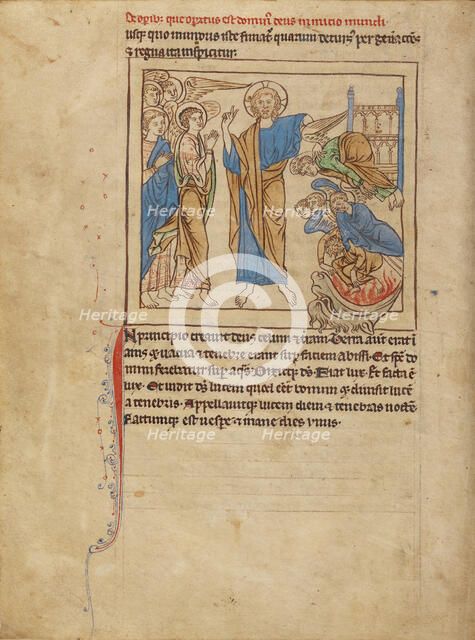 De operibus que operatus est dominus deus in inicio mundi
usque quo mundus iste finiatur quarum
& regna ita inspicitur.
N principio creavit deus celum & terram Terra autem erat i
anis & vacua & tenebre erant super faciem abissi. Et spiritus do
mini ferebatur super aquas Dixitque deus Fiat lux. Et facta est
lux. Et vidit deus lucem quod esset bonum & divisit lucem
a tenebris. Appellavitque lucem diem & tenebras noctem
Factumque est vespere & mane dies unus.
Heritage
Heritage
Heritage
Heritage
Heritage
Heritage
Heritage